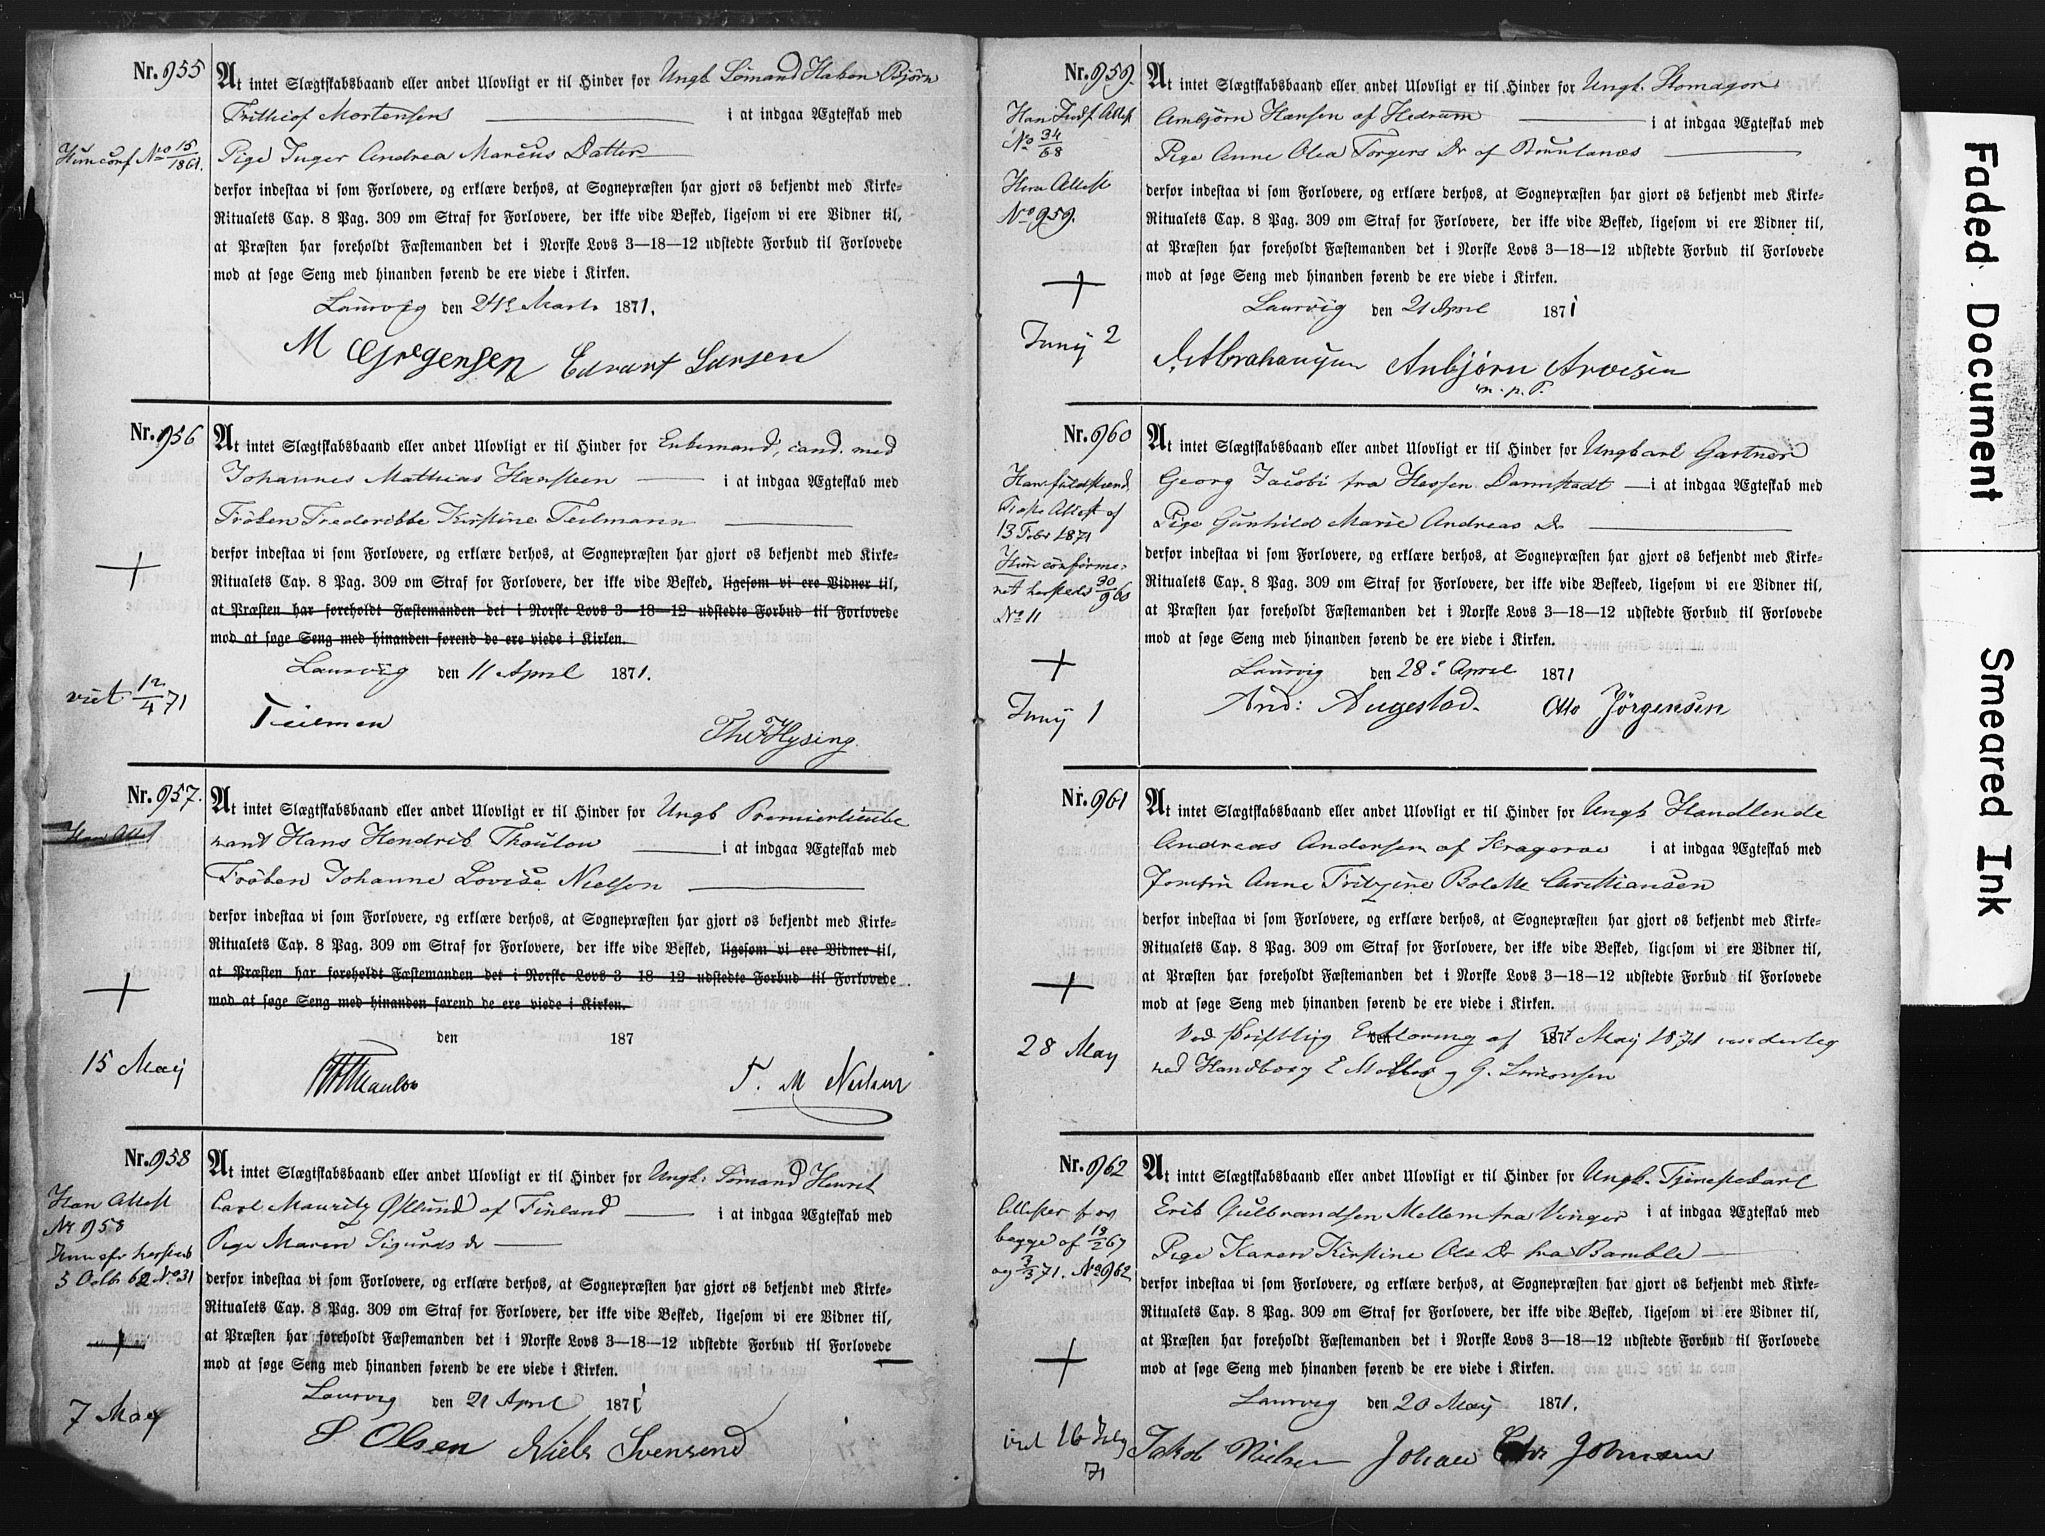 Nr. 955
At intet Slægtskabsbaand eller andet Ulovligt er til Hinder for Ungk Sömand Hakon Bjørn
Frithiof Mortensen i at indgaa Ægteskab med
Hun conf No 15/1861.
Pige Inger Andrea Marcus Datter
derfor indestaa vi som Forlovere, og erklære derhos, at Sognepræsten har gjort os bekjendt med Kirke-
Ritualets Cap. 8 Pag. 309 om Straf for Forlovere, der ikke vide Besked, ligesom vi ere Vidner til,
at Præsten har foreholdt Fæstemanden det i Norske Lovs 3—18—12 udstedte Forbud til Forlovede
mod at søge Seng med hinanden førend de ere viede i Kirken.
Laurvig den 24 Marts 1871.
M Gregersen Edvart Larsen
Nr. 956
At intet Slægtskabsbaand eller andet Ulovligt er til Hinder for Enkemand, cand. med
Johannes Mathias Hansteen i at indgaa Ægteskab med
Fröken Frederikke Kirstine Teilmann
derfor indestaa vi som Forlovere, og erklære derhos, at Sognepræsten har gjort os bekjendt med Kirke-
Ritualets Cap. 8 Pag. 309 om Straf for Forlovere, der ikke vide Besked, ligesom vi ere Vidner til,
at Præsten har foreholdt Fæstemanden det i Norske Lovs 3—18—12 udstedte Forbud til Forlovede
mod at søge Seng med hinanden førend de ere viede i Kirken.
Laurvig den 11 April 1871.
viet 12/4 71
Teilman Th. F. Hysing
Nr. 957.
Han Attest
At intet Slægtskabsbaand eller andet Ulovligt er til Hinder for Ungk Premierlieute
nant Hans Hendrik Thaulow i at indgaa Ægteskab med
Fröken Johanne Lovise Nielsen
derfor indestaa vi som Forlovere, og erklære derhos, at Sognepræsten har gjort os bekjendt med Kirke-
Ritualets Cap. 8 Pag. 309 om Straf for Forlovere, der ikke vide Besked, ligesom vi ere Vidner til,
at Præsten har foreholdt Fæstemanden det i Norske Lovs 3—18—12 udstedte Forbud til Forlovede
mod at søge Seng med hinanden førend de ere viede i Kirken.
den 187
15 Maij
Thaulow T. M Nielsen
Nr. 958
Han Attest
Nr 958
5 Octb 62 No 31
At intet Slægtskabsbaand eller andet Ulovligt er til Hinder for Ungk. Sömand Henrik
Carl Mauritz Østlund af Finland i at indgaa Ægteskab med
Pige Maren Sigurds Dr
derfor indestaa vi som Forlovere, og erklære derhos, at Sognepræsten har gjort os bekjendt med Kirke-
Ritualets Cap. 8 Pag. 309 om Straf for Forlovere, der ikke vide Besked, ligesom vi ere Vidner til,
at Præsten har foreholdt Fæstemanden det i Norske Lovs 3—18—12 udstedte Forbud til Forlovede
mod at søge Seng med hinanden førend de ere viede i Kirken.
Laurvig den 21 April 1871
7 Maij
S Olsen Niels Svensend
Nr. 959.
Han Indf Attest
No 34/68
Hun Attest
No 959.
At intet Slægtskabsbaand eller andet Ulovligt er til Hinder for Ungk. Skomager
Anbjörn Hansen af Hedrum i at indgaa Ægteskab med
Pige Anne Olea Torgers Dr af Brunlanæs
derfor indestaa vi som Forlovere, og erklære derhos, at Sognepræsten har gjort os bekjendt med Kirke-
Ritualets Cap. 8 Pag. 309 om Straf for Forlovere, der ikke vide Besked, ligesom vi ere Vidner til,
at Præsten har foreholdt Fæstemanden det i Norske Lovs 3—18—12 udstedte Forbud til Forlovede
mod at søge Seng med hinanden førend de ere viede i Kirken.
Laurvig den 21 April 1871
Junij 2
Abrahamsen Anbjørn Arvesen
m. p. P.
Nr. 960
Attest af
13 Febr 1871
Hun confirme-
ret hersteds 30/9 60
No 11
At intet Slægtskabsbaand eller andet Ulovligt er til Hinder for Ungkarl Gartner
Georg Jacobi fra Hessen Darmstadt i at indgaa Ægteskab med
Pige Gunhild Marie Andreas Dr
derfor indestaa vi som Forlovere, og erklære derhos, at Sognepræsten har gjort os bekjendt med Kirke-
Ritualets Cap. 8 Pag. 309 om Straf for Forlovere, der ikke vide Besked, ligesom vi ere Vidner til,
at Præsten har foreholdt Fæstemanden det i Norske Lovs 3—18—12 udstedte Forbud til Forlovede
mod at søge Seng med hinanden førend de ere viede i Kirken.
Laurvig den 28 April 1871
Junij 1
And: Augestad. Otto Jörgensen
Nr. 961
At intet Slægtskabsbaand eller andet Ulovligt er til Hinder for Ungk Handlende
Andreas Andersen af Krageröe i at indgaa Ægteskab med
Jomfru Anne Bolette Christiansen
derfor indestaa vi som Forlovere, og erklære derhos, at Sognepræsten har gjort os bekjendt med Kirke-
Ritualets Cap. 8 Pag. 309 om Straf for Forlovere, der ikke vide Besked, ligesom vi ere Vidner til,
at Præsten har foreholdt Fæstemanden det i Norske Lovs 3—18—12 udstedte Forbud til Forlovede
mod at søge Seng med hinanden førend de ere viede i Kirken.
Ved skriftlig Erklæring af Maij 1871 vederleg
28 Maij
ved Handborg E Møller og G. Simonsen
Nr. 962
Attester for
begge af 19/2 67
og 3/3 71. No 962
At intet Slægtskabsbaand eller andet Ulovligt er til Hinder for Ungk. Tjenestekarl
Erik Gulbrandsen Mellem fra Vinger i at indgaa Ægteskab med
Pige Karen Kirstine Ols Dr fra Bamble
derfor indestaa vi som Forlovere, og erklære derhos, at Sognepræsten har gjort os bekjendt med Kirke-
Ritualets Cap. 8 Pag. 309 om Straf for Forlovere, der ikke vide Besked, ligesom vi ere Vidner til,
at Præsten har foreholdt Fæstemanden det i Norske Lovs 3—18—12 udstedte Forbud til Forlovede
mod at søge Seng med hinanden førend de ere viede i Kirken.
Laurvig den 20 Maij 1871.
viet 16 July
71
Jakob Nielsen Johan Johnsen
Faded Document
Smeared Ink